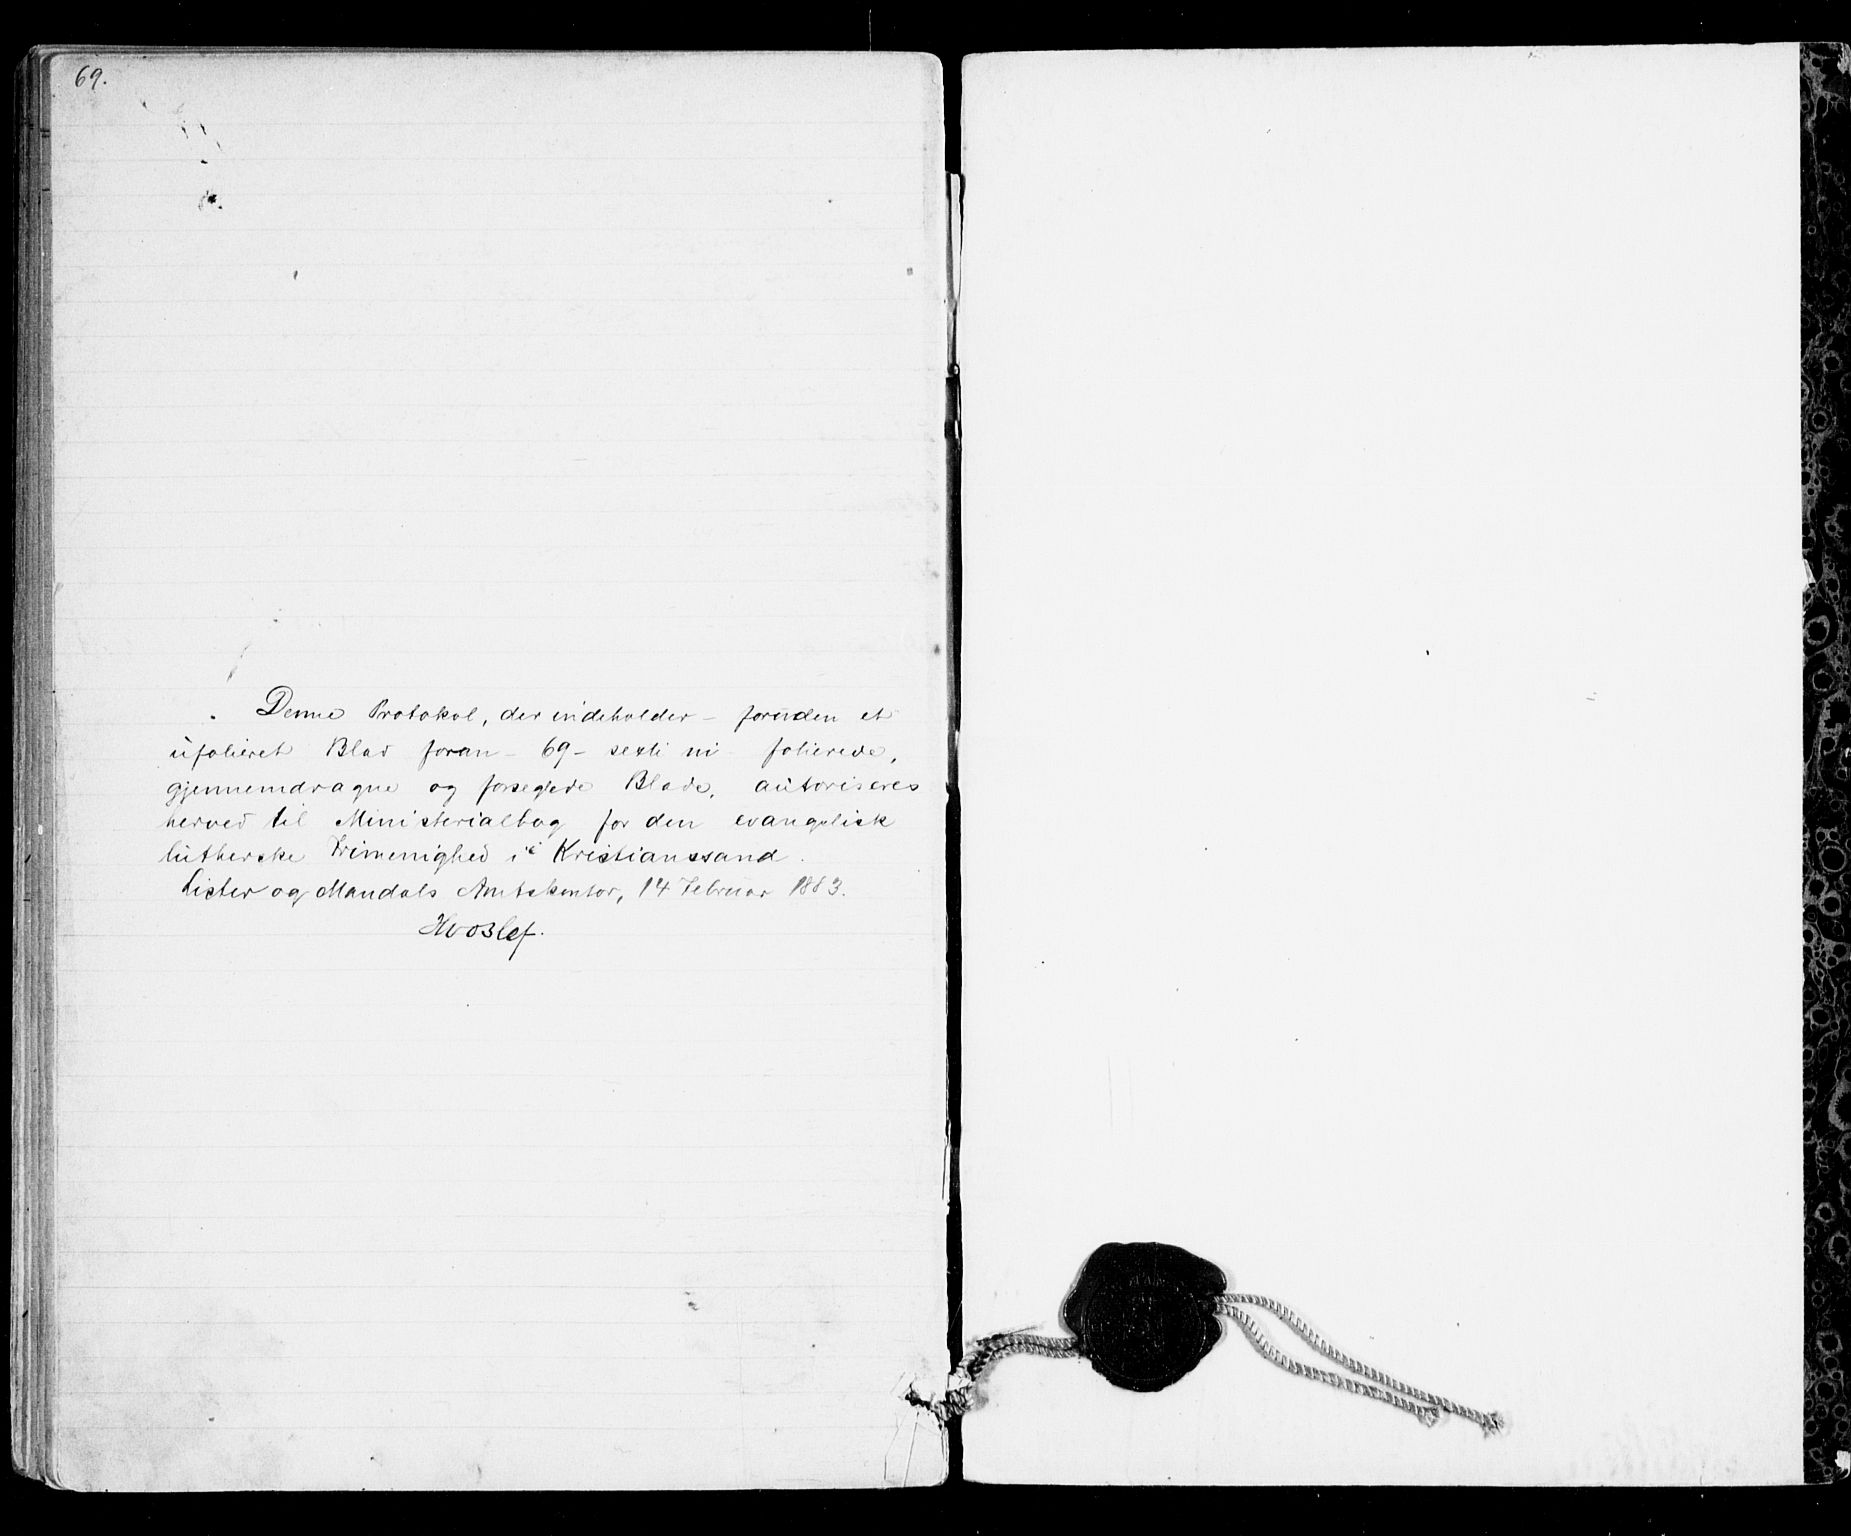 69.
Denne Protokol, der indeholder – foruden et
ufolieret Blad foran – 69 – sexti ni – folierede,
gjennemdragne og forseglede Blade, autoriseres
herved til Ministerialbog for den evangelisk
lutherske Frimenighed i Kristianssand.
Lister og Mandals Amtskontor, 14 Februar 1883.
Hvoslef.